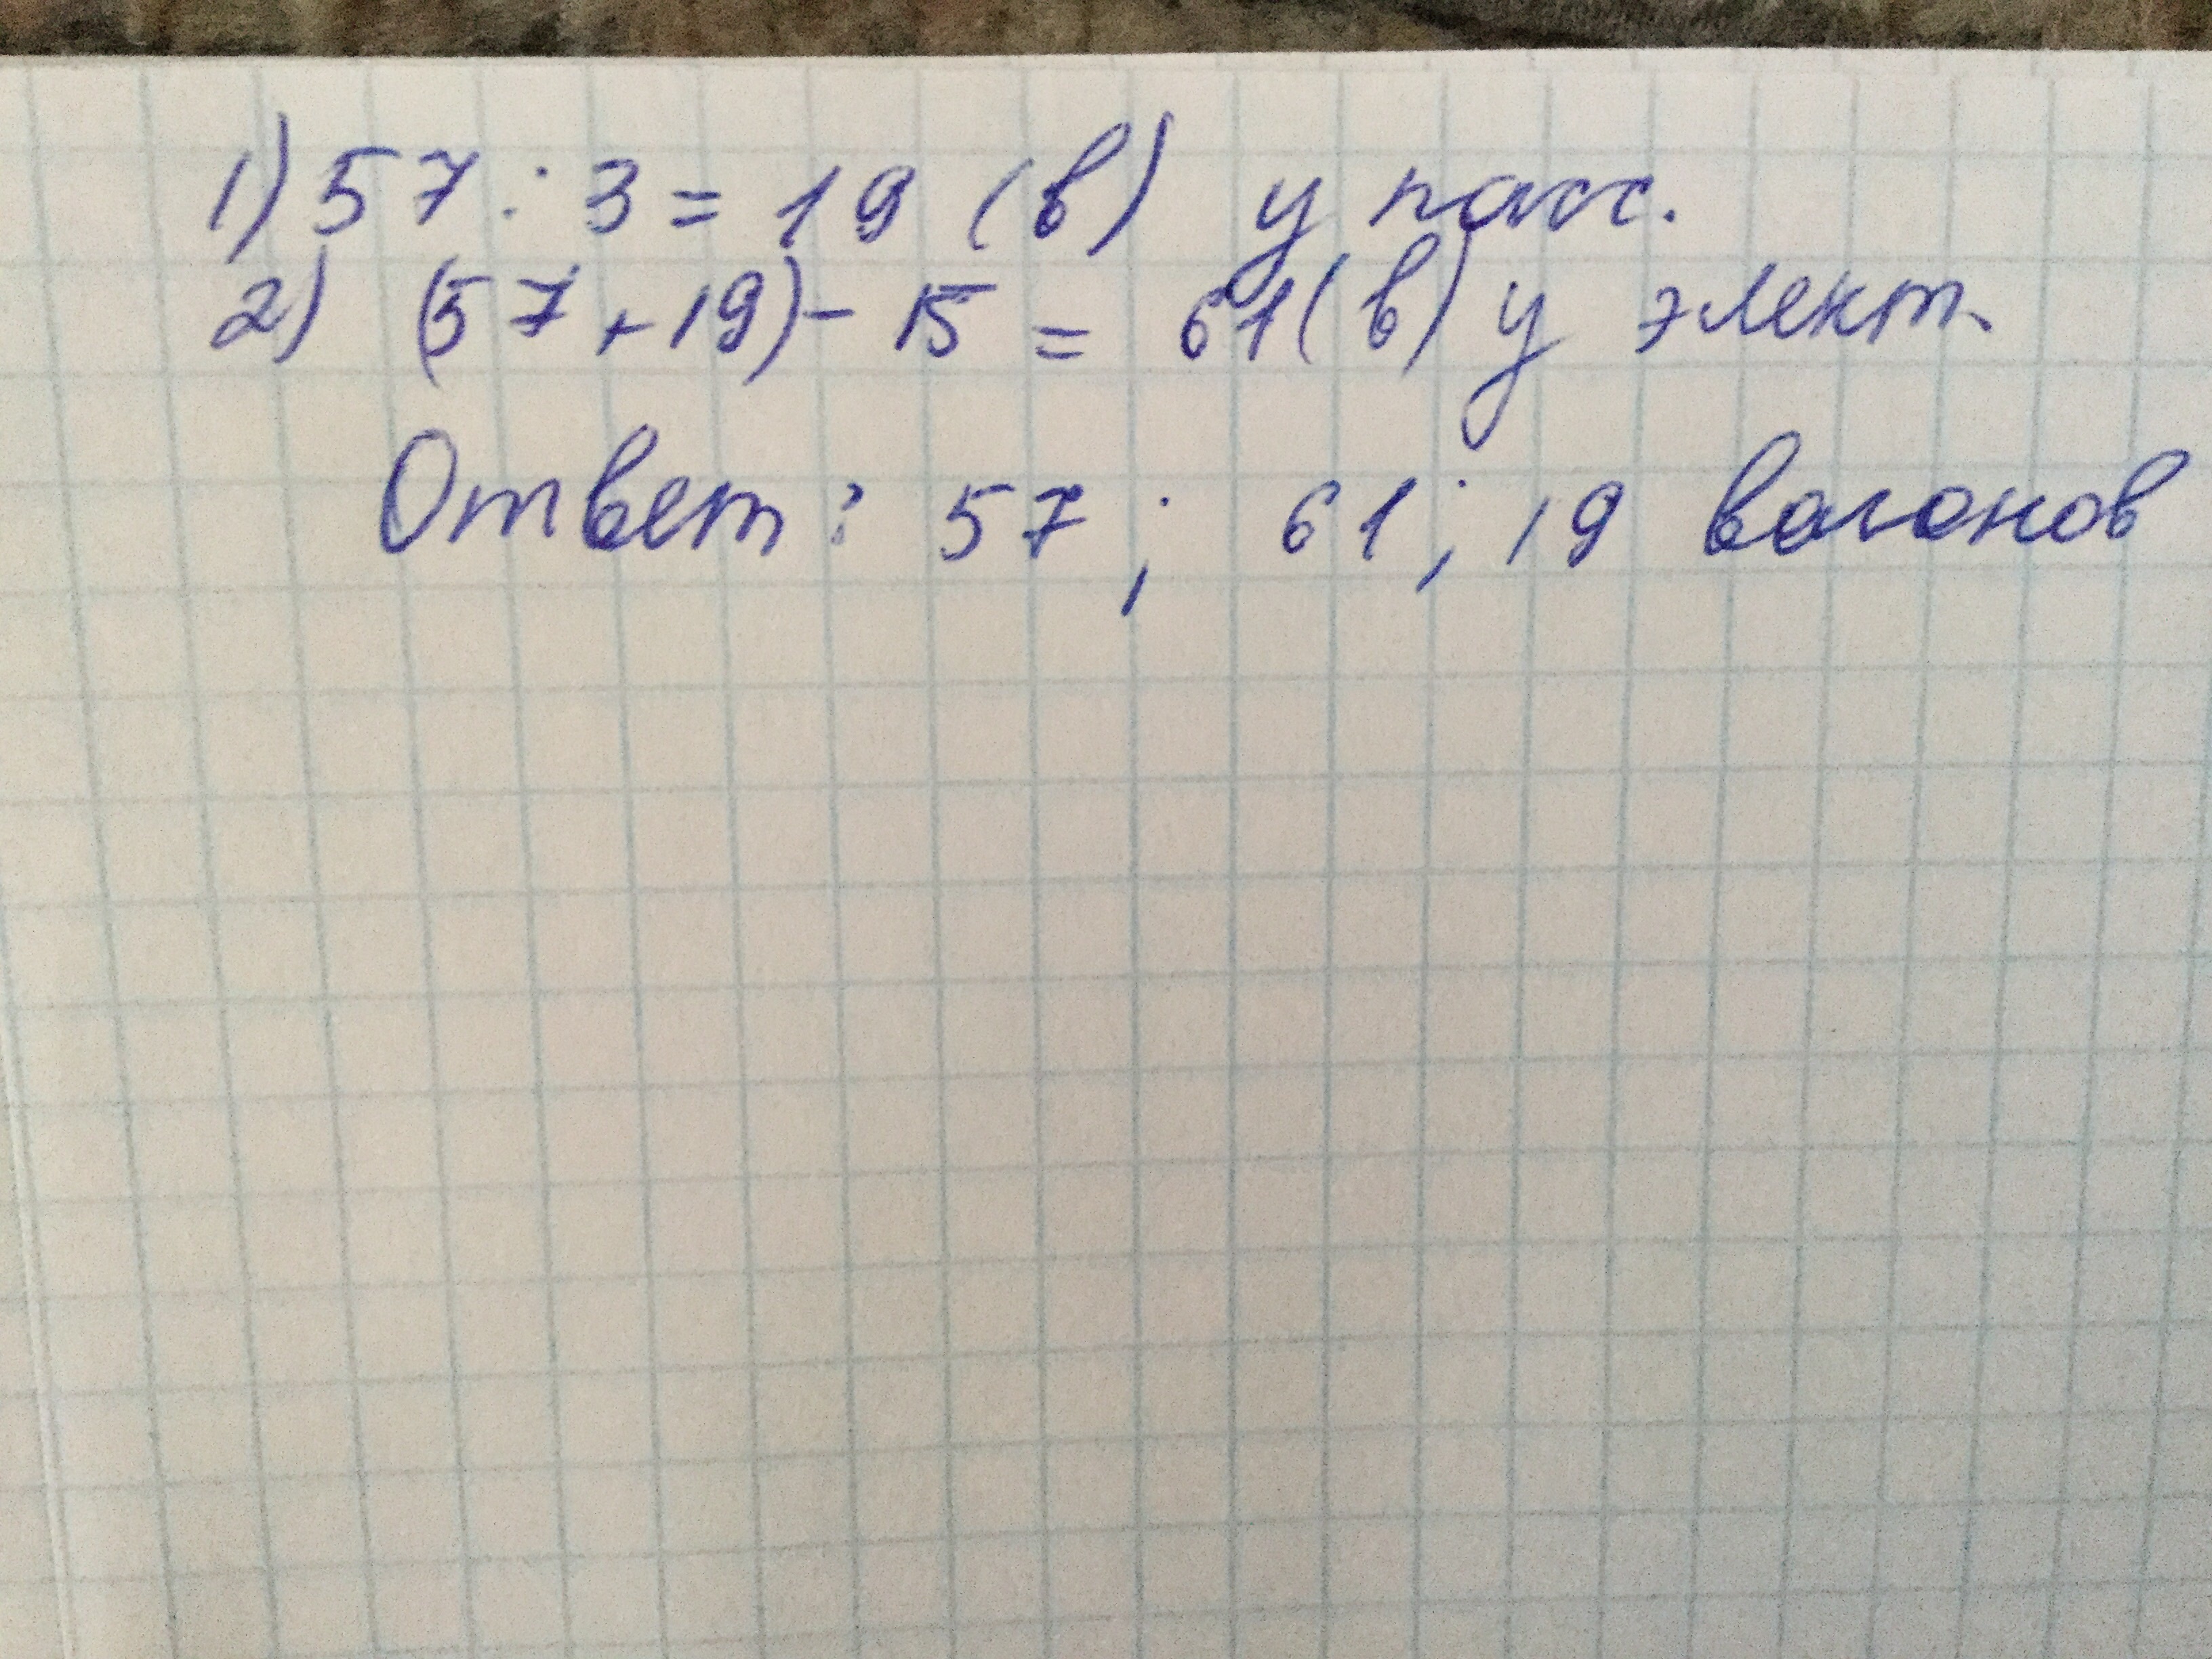 1) 57 : 3 = 19 (в) у пасс.
2) (57 + 19) - 15 = 61 (в) у элект.
Ответ: 57; 61; 19 вагонов